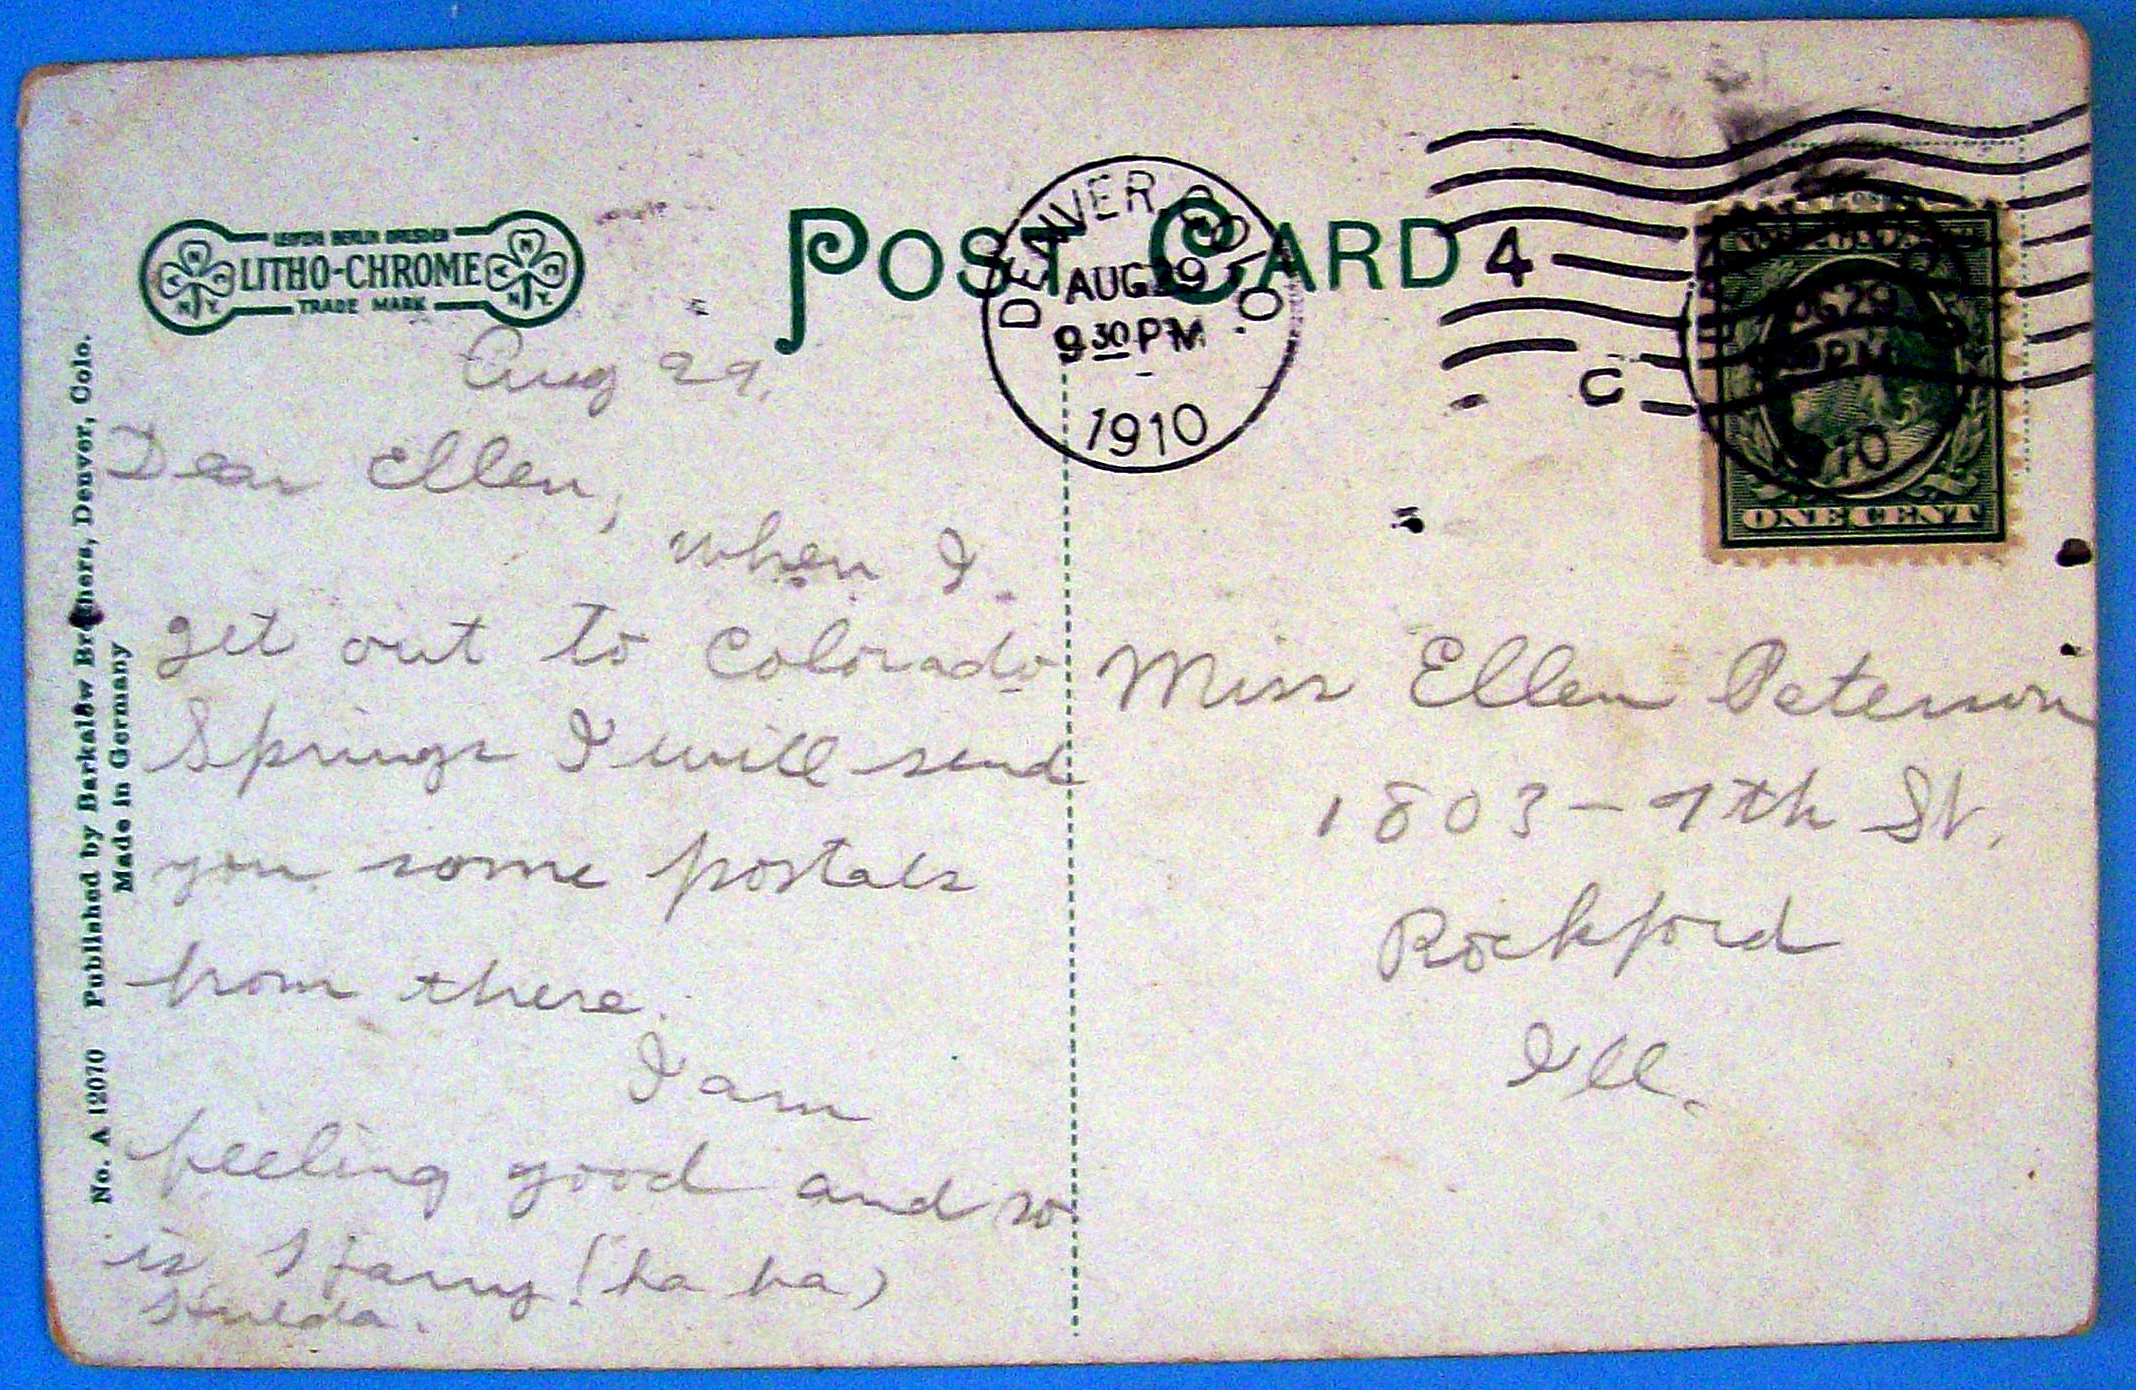 LITHO-CHROME
TRADE MARK
POST CARD
DENVER, COLO.
AUG 29
9 30 PM
1910
4
C
AUG 29
1910
ONE CENT
Aug 29.
Dear Ellen,
when I
get out to Colorado
Springs I will send
you some postals
from there.
I am
feeling good and so
is Harry (ha ha)
Hulda.
Miss Ellen Peterson
1803 - 7th St.
Rockford
Ill.
No. A 12070 Published by Barkalow Brothers, Denver, Colo.
Made in Germany